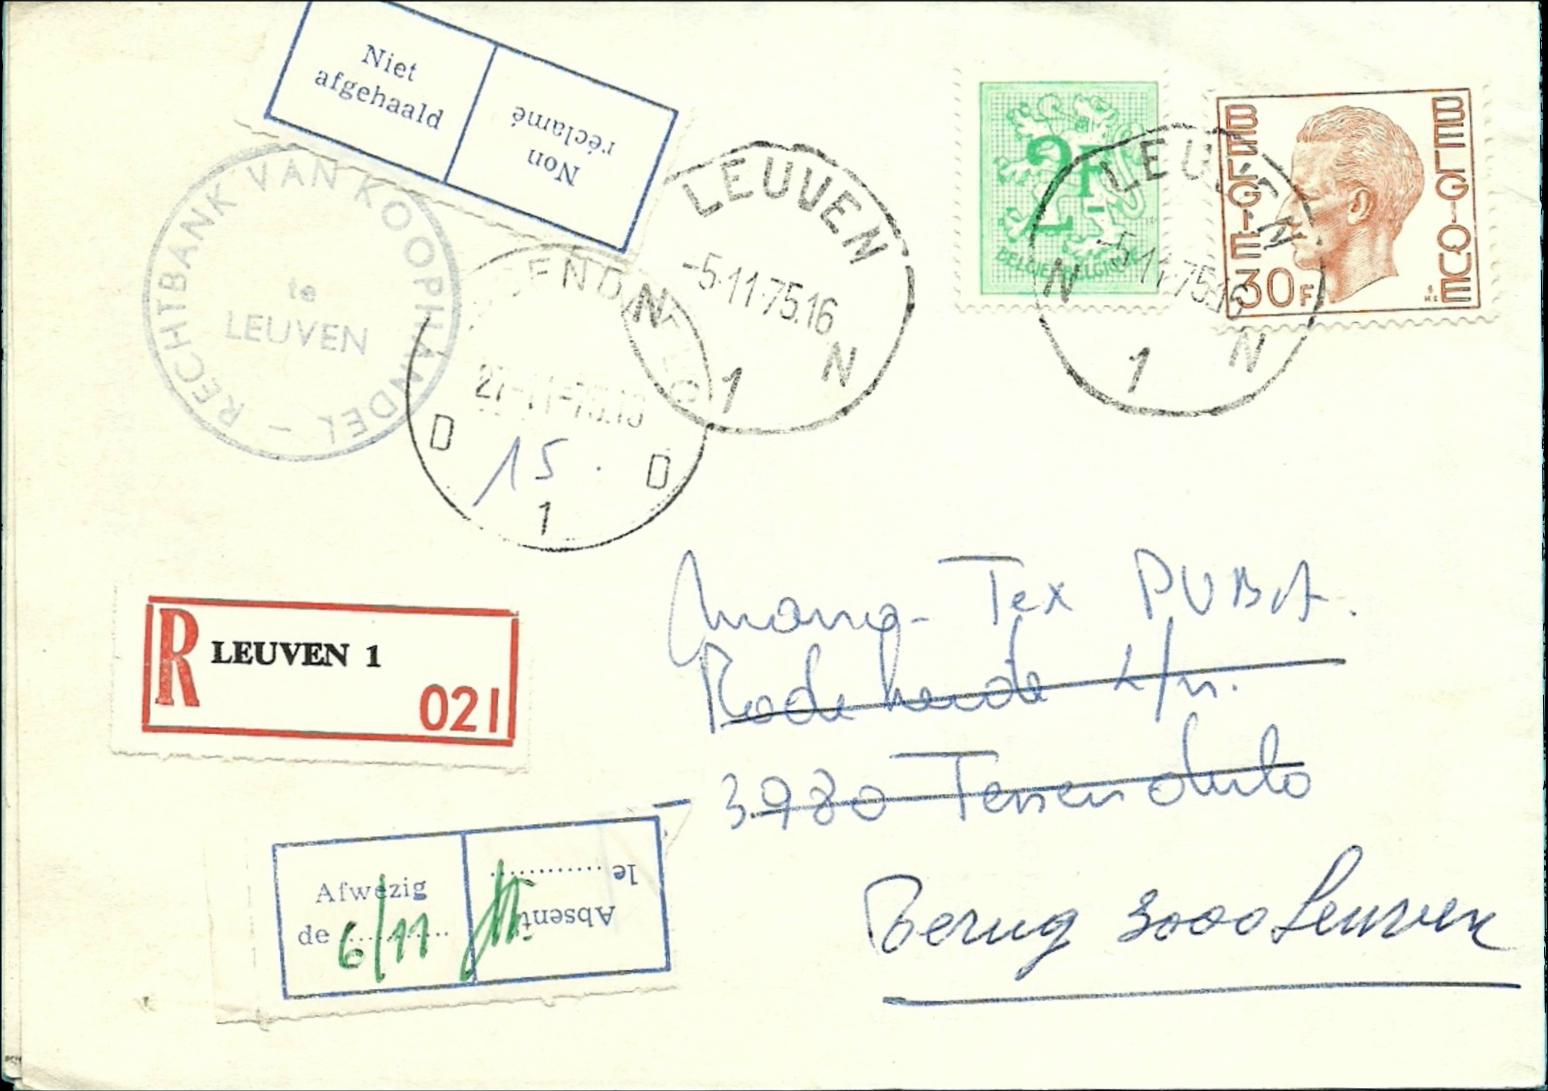 Niet
afgehaald
Non
réclamé
RECHTBANK VAN KOOPHANDEL -
te
LEUVEN
LEUVEN
-5-11-75.16
N N
1
2F
BELGIE BELGIQUE
LEUVEN
-5-11-75.16
N N
1
BELGIE
BELGIQUE
30F
27-11-75
D D
1
15.
R LEUVEN 1
021
Tex PVBA.
Rode heide z/n.
3980 Tessenderlo
Terug 3000 Leuven
Afwezig
de 6/11
Absent
le